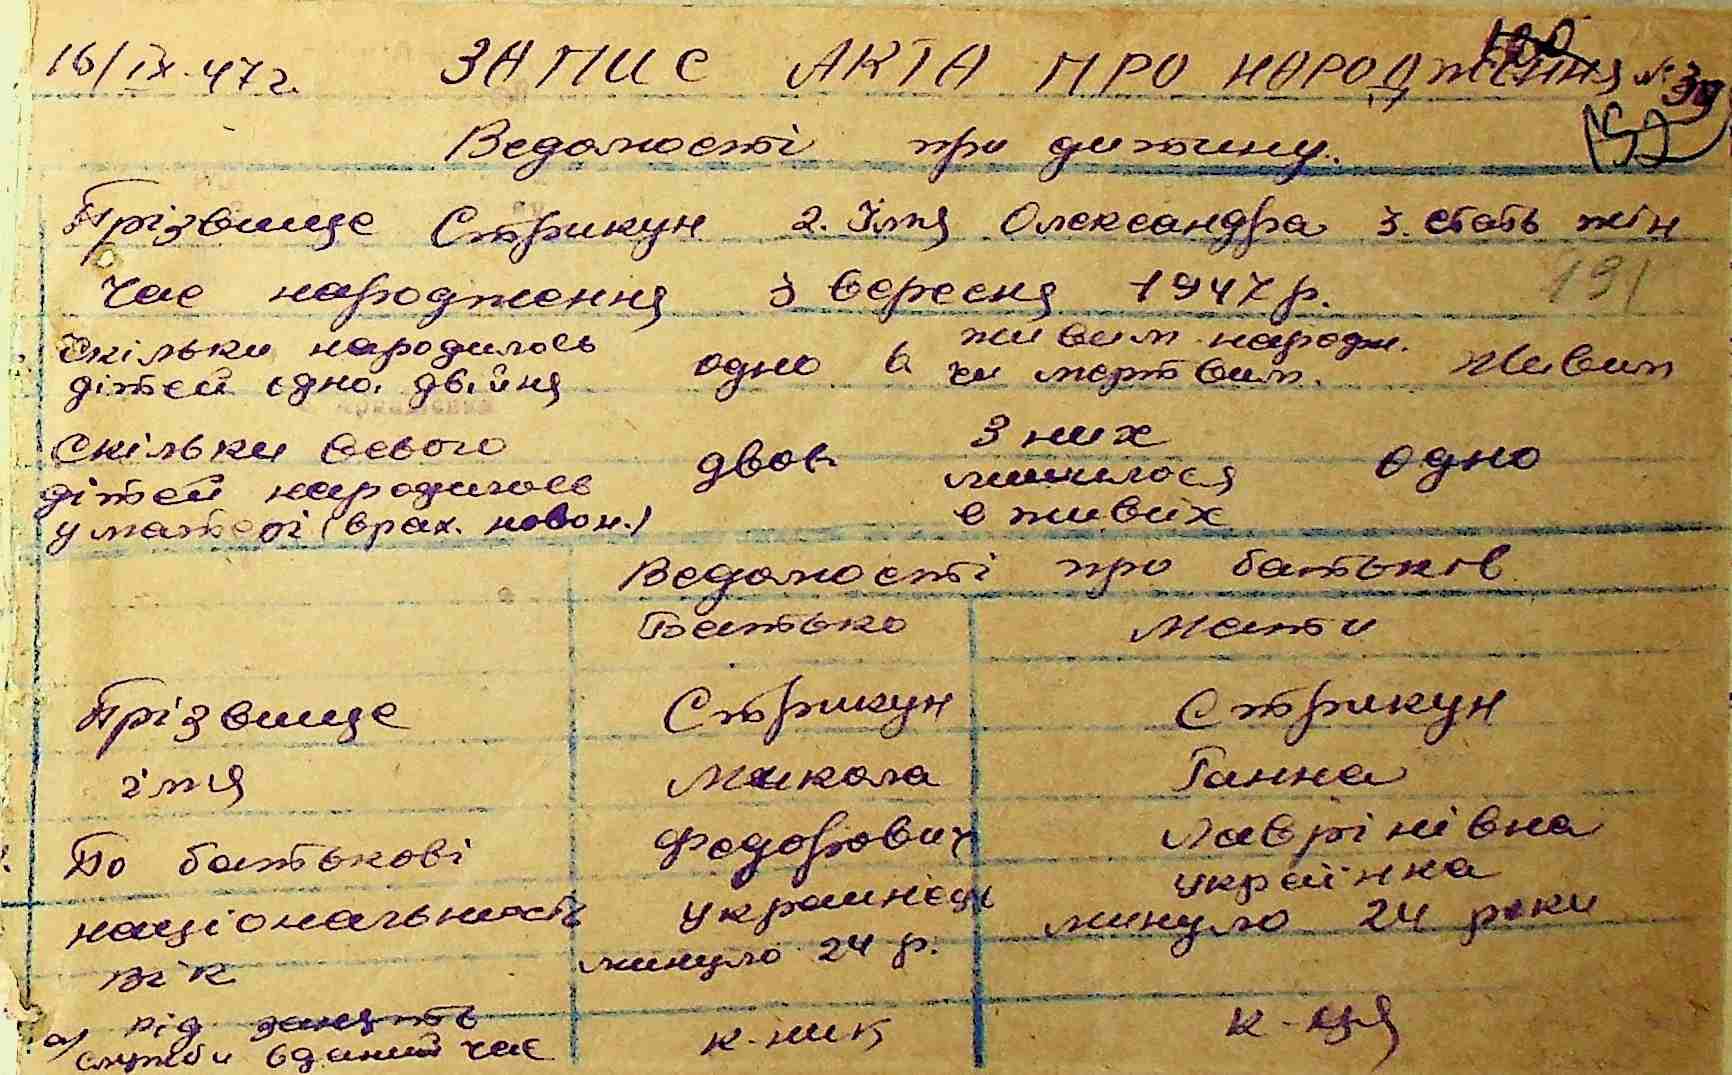 16/ІХ-47 г. ЗАПИС АКТА ПРО НАРОДЖЕННЯ №
152
Ведомості про дитину.
Прізвище Стрикун 2. Імя Олександра 3. стать жін
Час народження 3 вересня 1947 р. 191
Скільки народилось дітей одно, двійня одно в живим народж. чи мертвим. Живим
Скільки всього дітей народилось у матері (врах. новон.) двоє З них лишилося в живих одно
Ведомості про батьків
Батько Мати
Прізвище Стрикун Стрикун
імя Микола Ганна
По батькові Федорович Лаврінівна
національність украинець українка
вік минуло 24 р. минуло 24 роки
а) рід занять служби в даний час к-ник к-ця